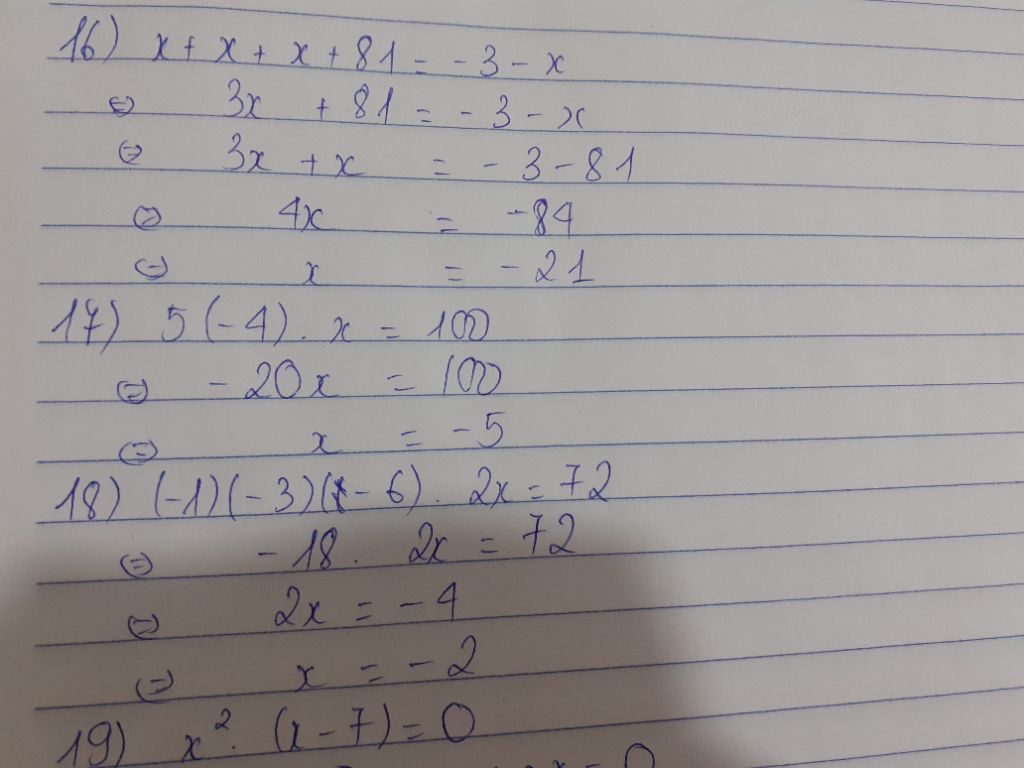 16) x + x + x + 81 = - 3 - x
⇔ 3x + 81 = - 3 - x
⇔ 3x + x = - 3 - 81
⇔ 4x = - 84
⇔ x = - 21
17) 5 (- 4) . x = 100
⇔ - 20x = 100
⇔ x = - 5
18) (- 1) (- 3) (- 6) . 2x = 72
⇔ - 18 . 2x = 72
⇔ 2x = - 4
⇔ x = - 2
19) x² . (x - 7) = 0